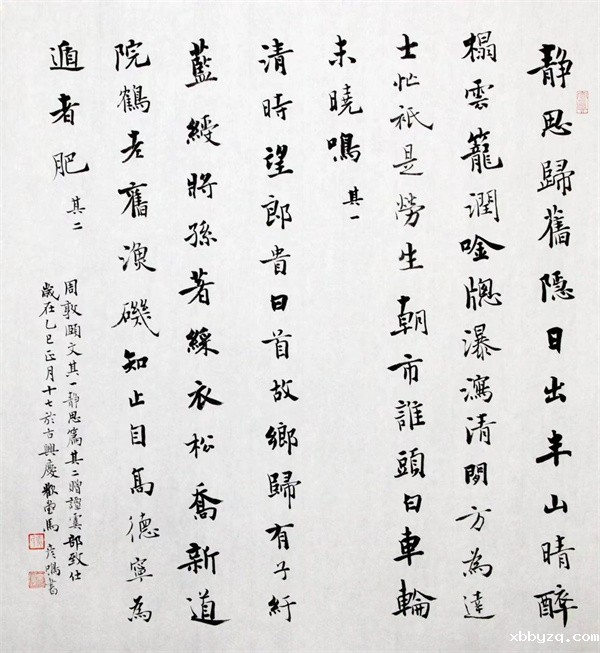 静思歸舊隱日出半山晴醉
榻雲籠潤唫牕瀑瀉清閒方為達
士忙祇是勞生朝市誰頭白車輪
未曉鳴 其一
清時望郎貴白首故鄉歸有子紆
藍綬將孫著綵衣松喬新道
院鶴老舊漁磯知止自高德寧為
遁者肥 其二
周敦頤文其一靜思篇其二贈譚虞部致仕
歲在乙巳正月十七於古興慶 馬 鳴書
xbbyzq.com